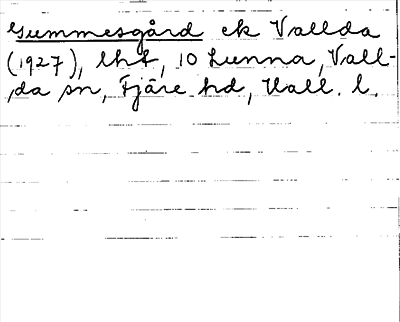 Gummesgård ek Vallda
(1927), lht, 10 Lunna, Vall-
da sn, Fjäre hd, Hall. l.